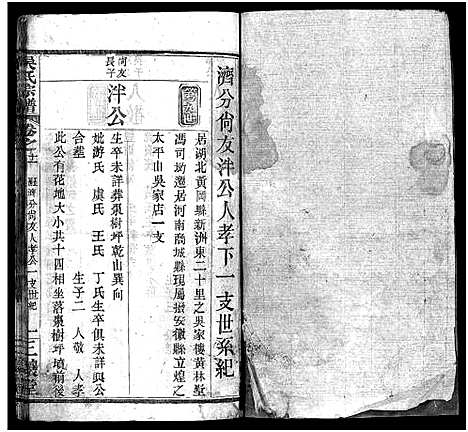 濟分尙友泮公人孝下一支世系紀
居湖北黃岡縣新洲東二十里之吳家樓黃林墅
馮司塆遷居河南商城縣現屬撥安徽縣立煌之
太平山吳家店一支
尙友長子
泮公
生卒未詳葬棗樹坪乾山巽向
妣游氏 虞氏 王氏 丁氏生卒俱未詳與公
合塟 生子二 人敬 人孝
此公有花地大小共十四相坐落棗樹坪墳前後
吳氏宗譜
卷之
經濟分尙友人孝公一支世紀